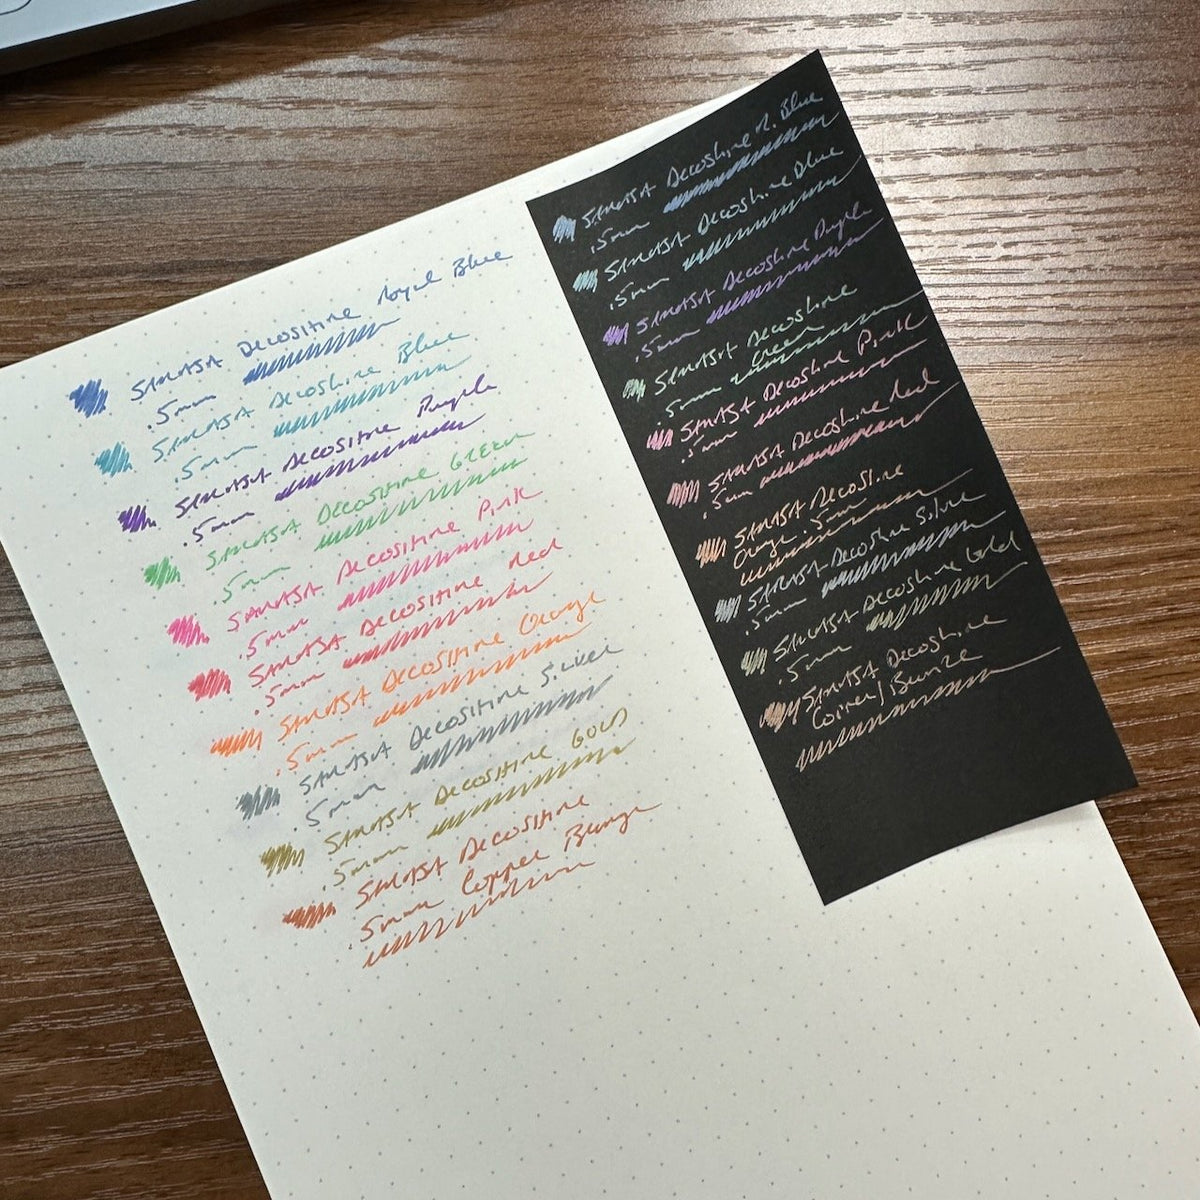 SARASA DECOSHINE Royal Blue
.5mm
SARASA DECOSHINE Blue
.5mm
SARASA DECOSHINE Purple
.5mm
SARASA DECOSHINE GREEN
.5mm
SARASA DECOSHINE Pink
.5mm
SARASA DECOSHINE Red
.5mm
SARASA DECOSHINE Orange
.5mm
SARASA DECOSHINE SILVER
.5mm
SARASA DECOSHINE GOLD
.5mm
SARASA DECOSHINE
.5mm Copper Bronze
SARASA Decoshine R. Blue
.5mm
SARASA Decoshine Blue
.5mm
SARASA Decoshine Purple
.5mm
SARASA Decoshine
.5mm Green
SARASA Decoshine Pink
.5mm
SARASA Decoshine Red
.5mm
SARASA Decoshine
Orange .5mm
SARASA Decoshine Silver
.5mm
SARASA Decoshine Gold
.5mm
SARASA Decoshine
Copper/Bronze